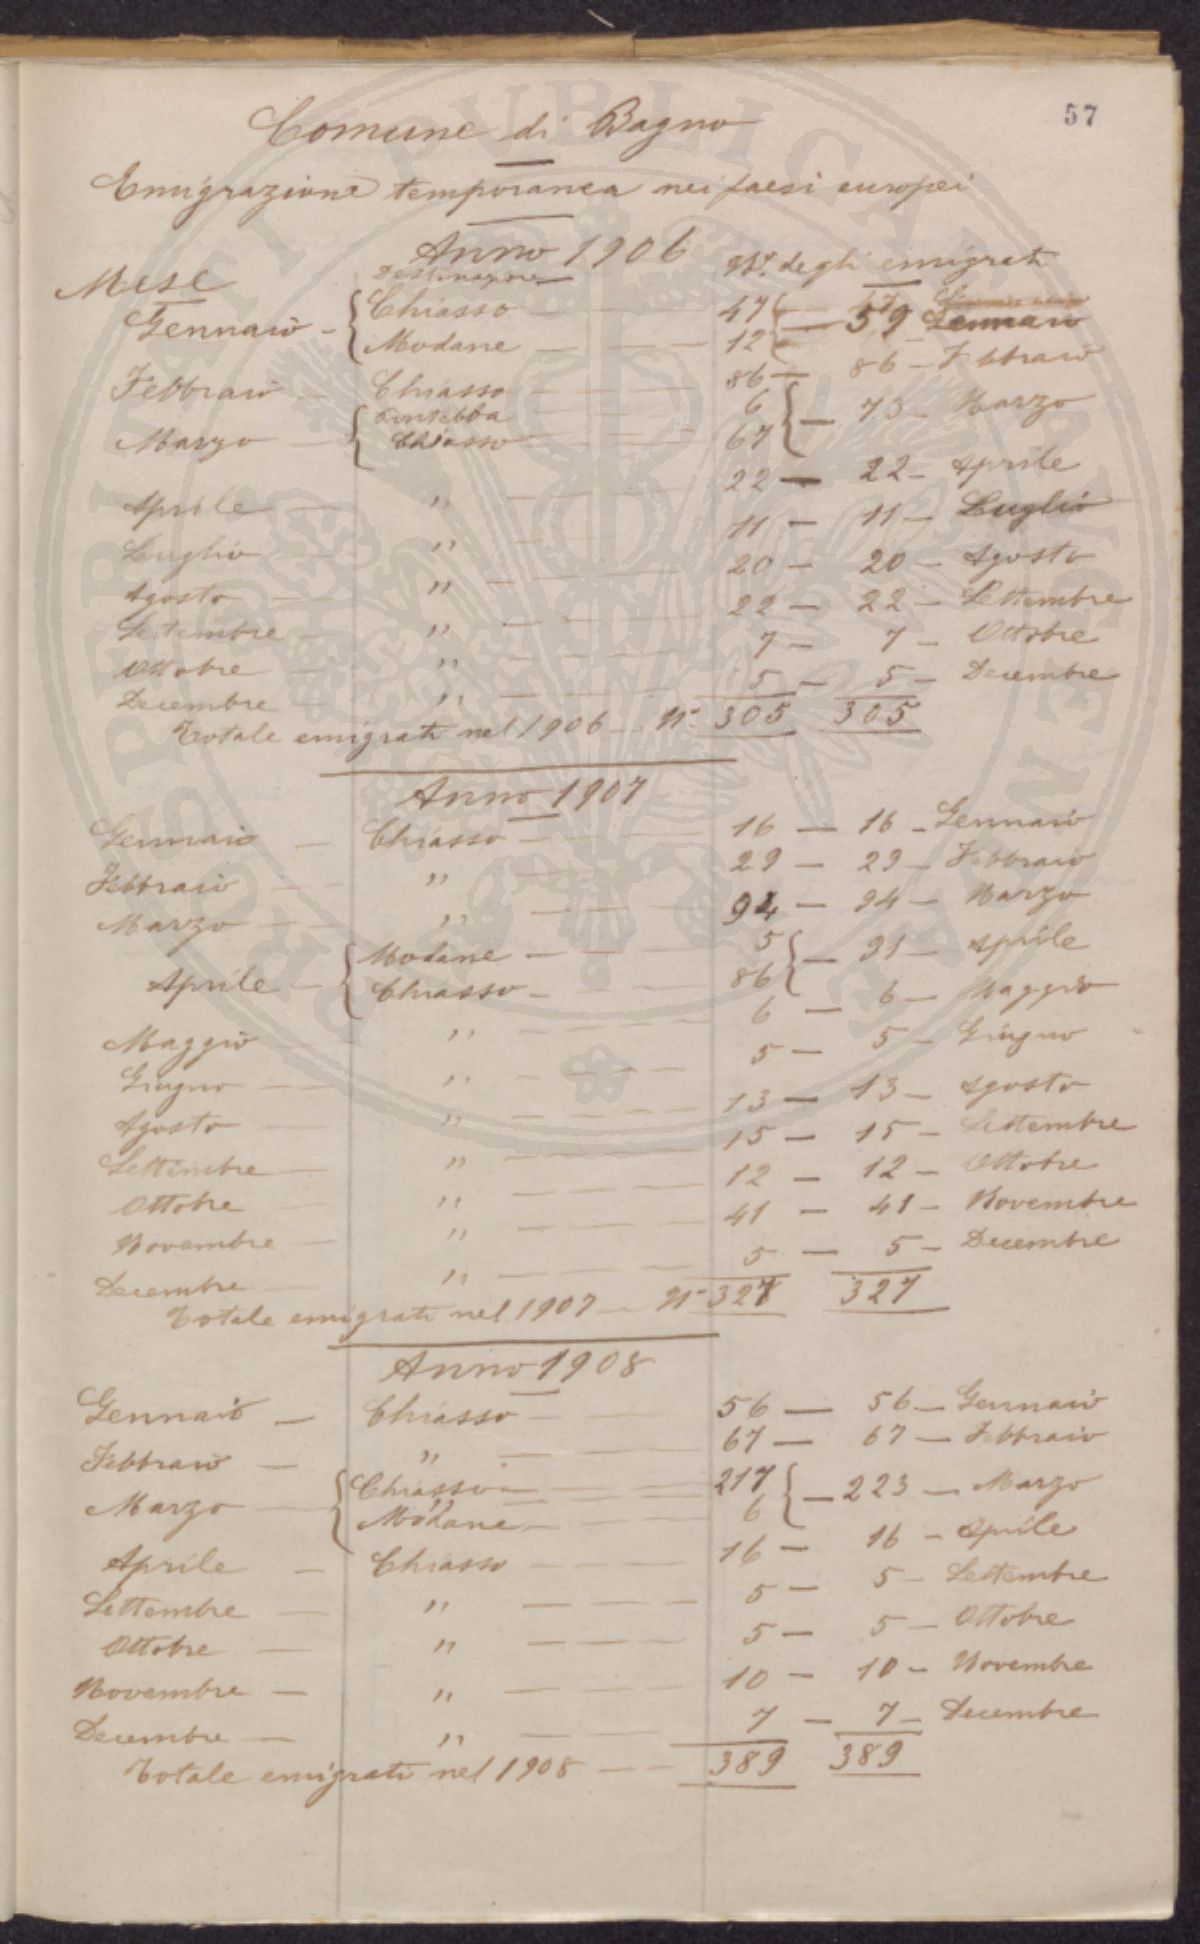 57
Comune di Bagno
Emigrazione temporanea nei paesi europei
Anno 1906
Mese Destinazione N.º degli emigrati
Gennaio - { Chiasso — 47 } — 59 Gennaio
Modane — — — 12
Febbraio — Chiasso — — 86 — 86 — Febbraio
Marzo — { Pontebba — — 6 } — 73 — Marzo
Chiasso — — 67
Aprile — " — — — 22 — 22 — Aprile
Luglio — " — — — 11 — 11 — Luglio
Agosto — " — — — 20 — 20 — Agosto
Settembre — " — — — 22 — 22 — Settembre
Ottobre — " — — — 7 — 7 — Ottobre
Decembre — " — — — 5 — 5 — Decembre
Totale emigrati nel 1906 — N.º 305 305
Anno 1907
Gennaio — Chiasso — — 16 — 16 — Gennaio
Febbraio — " — — 29 — 29 — Febbraio
Marzo — " — — — 94 — 94 — Marzo
Aprile — { Modane — — — 5 } — 91 — Aprile
Chiasso — — — 86
Maggio — " — — — 6 — 6 — Maggio
Giugno — " — — — 5 — 5 — Giugno
Agosto — " — — — 13 — 13 — Agosto
Settembre — " — — — 15 — 15 — Settembre
Ottobre " — — — 12 — 12 — Ottobre
Novembre — " — — — 41 — 41 — Novembre
Decembre — " — — — 5 — 5 — Decembre
Totale emigrati nel 1907 — N.º 327 327
Anno 1908
Gennaio — Chiasso — — 56 — 56 — Gennaio
Febbraio — " — — — 67 — 67 — Febbraio
Marzo — { Chiasso — — — 217 } — 223 — Marzo
Modane — — — 6
Aprile — Chiasso — — — 16 — 16 — Aprile
Settembre — " — — — 5 — 5 — Settembre
Ottobre — " — — — 5 — 5 — Ottobre
Novembre — " — — — 10 — 10 — Novembre
Decembre — " — — 7 — 7 — Decembre
Totale emigrati nel 1908 — — 389 389